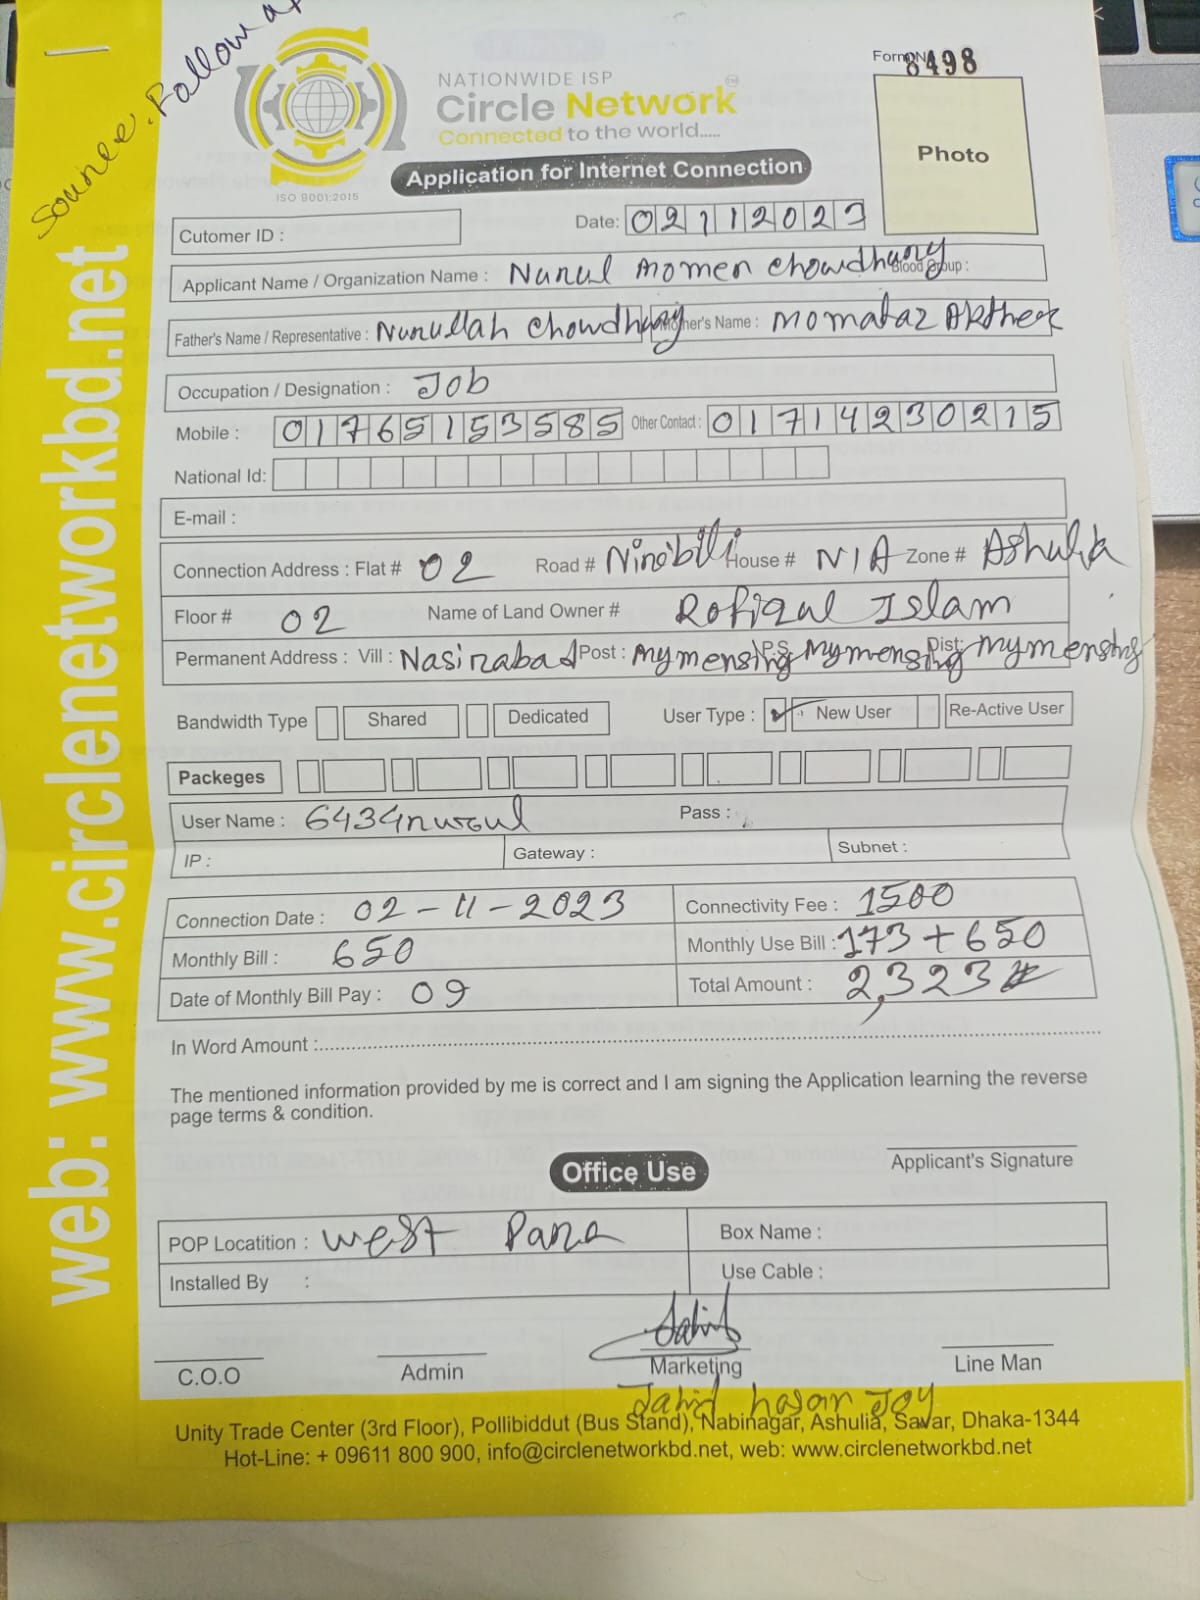 Sournce. Follow
NATIONWIDE ISP
Circle Network
Connected to the world.....
ISO 9001:2015
Form No 8498
Photo
Application for Internet Connection
Cutomer ID :
Date: 02112023
Applicant Name / Organization Name : Nurul Momen Chowdhury Blood Group :
Father's Name / Representative : Nurullah Chowdhury Mother's Name : Momataz Akther
Occupation / Designation : Job
Mobile : 01765153585 Other Contact : 01714230215
National Id:
E-mail :
Connection Address : Flat # 02 Road # Niribili House # N/A Zone # Ashulia
Floor # 02 Name of Land Owner # Rofiqul Islam
Permanent Address : Vill : Nasirabad Post : Mymensing P.S: Mymensing Dist: Mymensing
Bandwidth Type Shared Dedicated User Type : ✓ New User Re-Active User
Packeges
User Name : 6434nurul Pass :
IP : Gateway : Subnet :
Connection Date : 02-11-2023 Connectivity Fee : 1500
Monthly Bill : 650 Monthly Use Bill : 173+650
Date of Monthly Bill Pay : 09 Total Amount : 2,323
In Word Amount :
The mentioned information provided by me is correct and I am signing the Application learning the reverse
page terms & condition.
Applicant's Signature
Office Use
POP Locatition : West Para Box Name :
Installed By : Use Cable :
Jahid
C.O.O Admin Marketing Line Man
Jahid hasan Joy
Unity Trade Center (3rd Floor), Pollibiddut (Bus Stand), Nabinagar, Ashulia, Savar, Dhaka-1344
Hot-Line: + 09611 800 900, info@circlenetworkbd.net, web: www.circlenetworkbd.net
web: www.circlenetworkbd.net